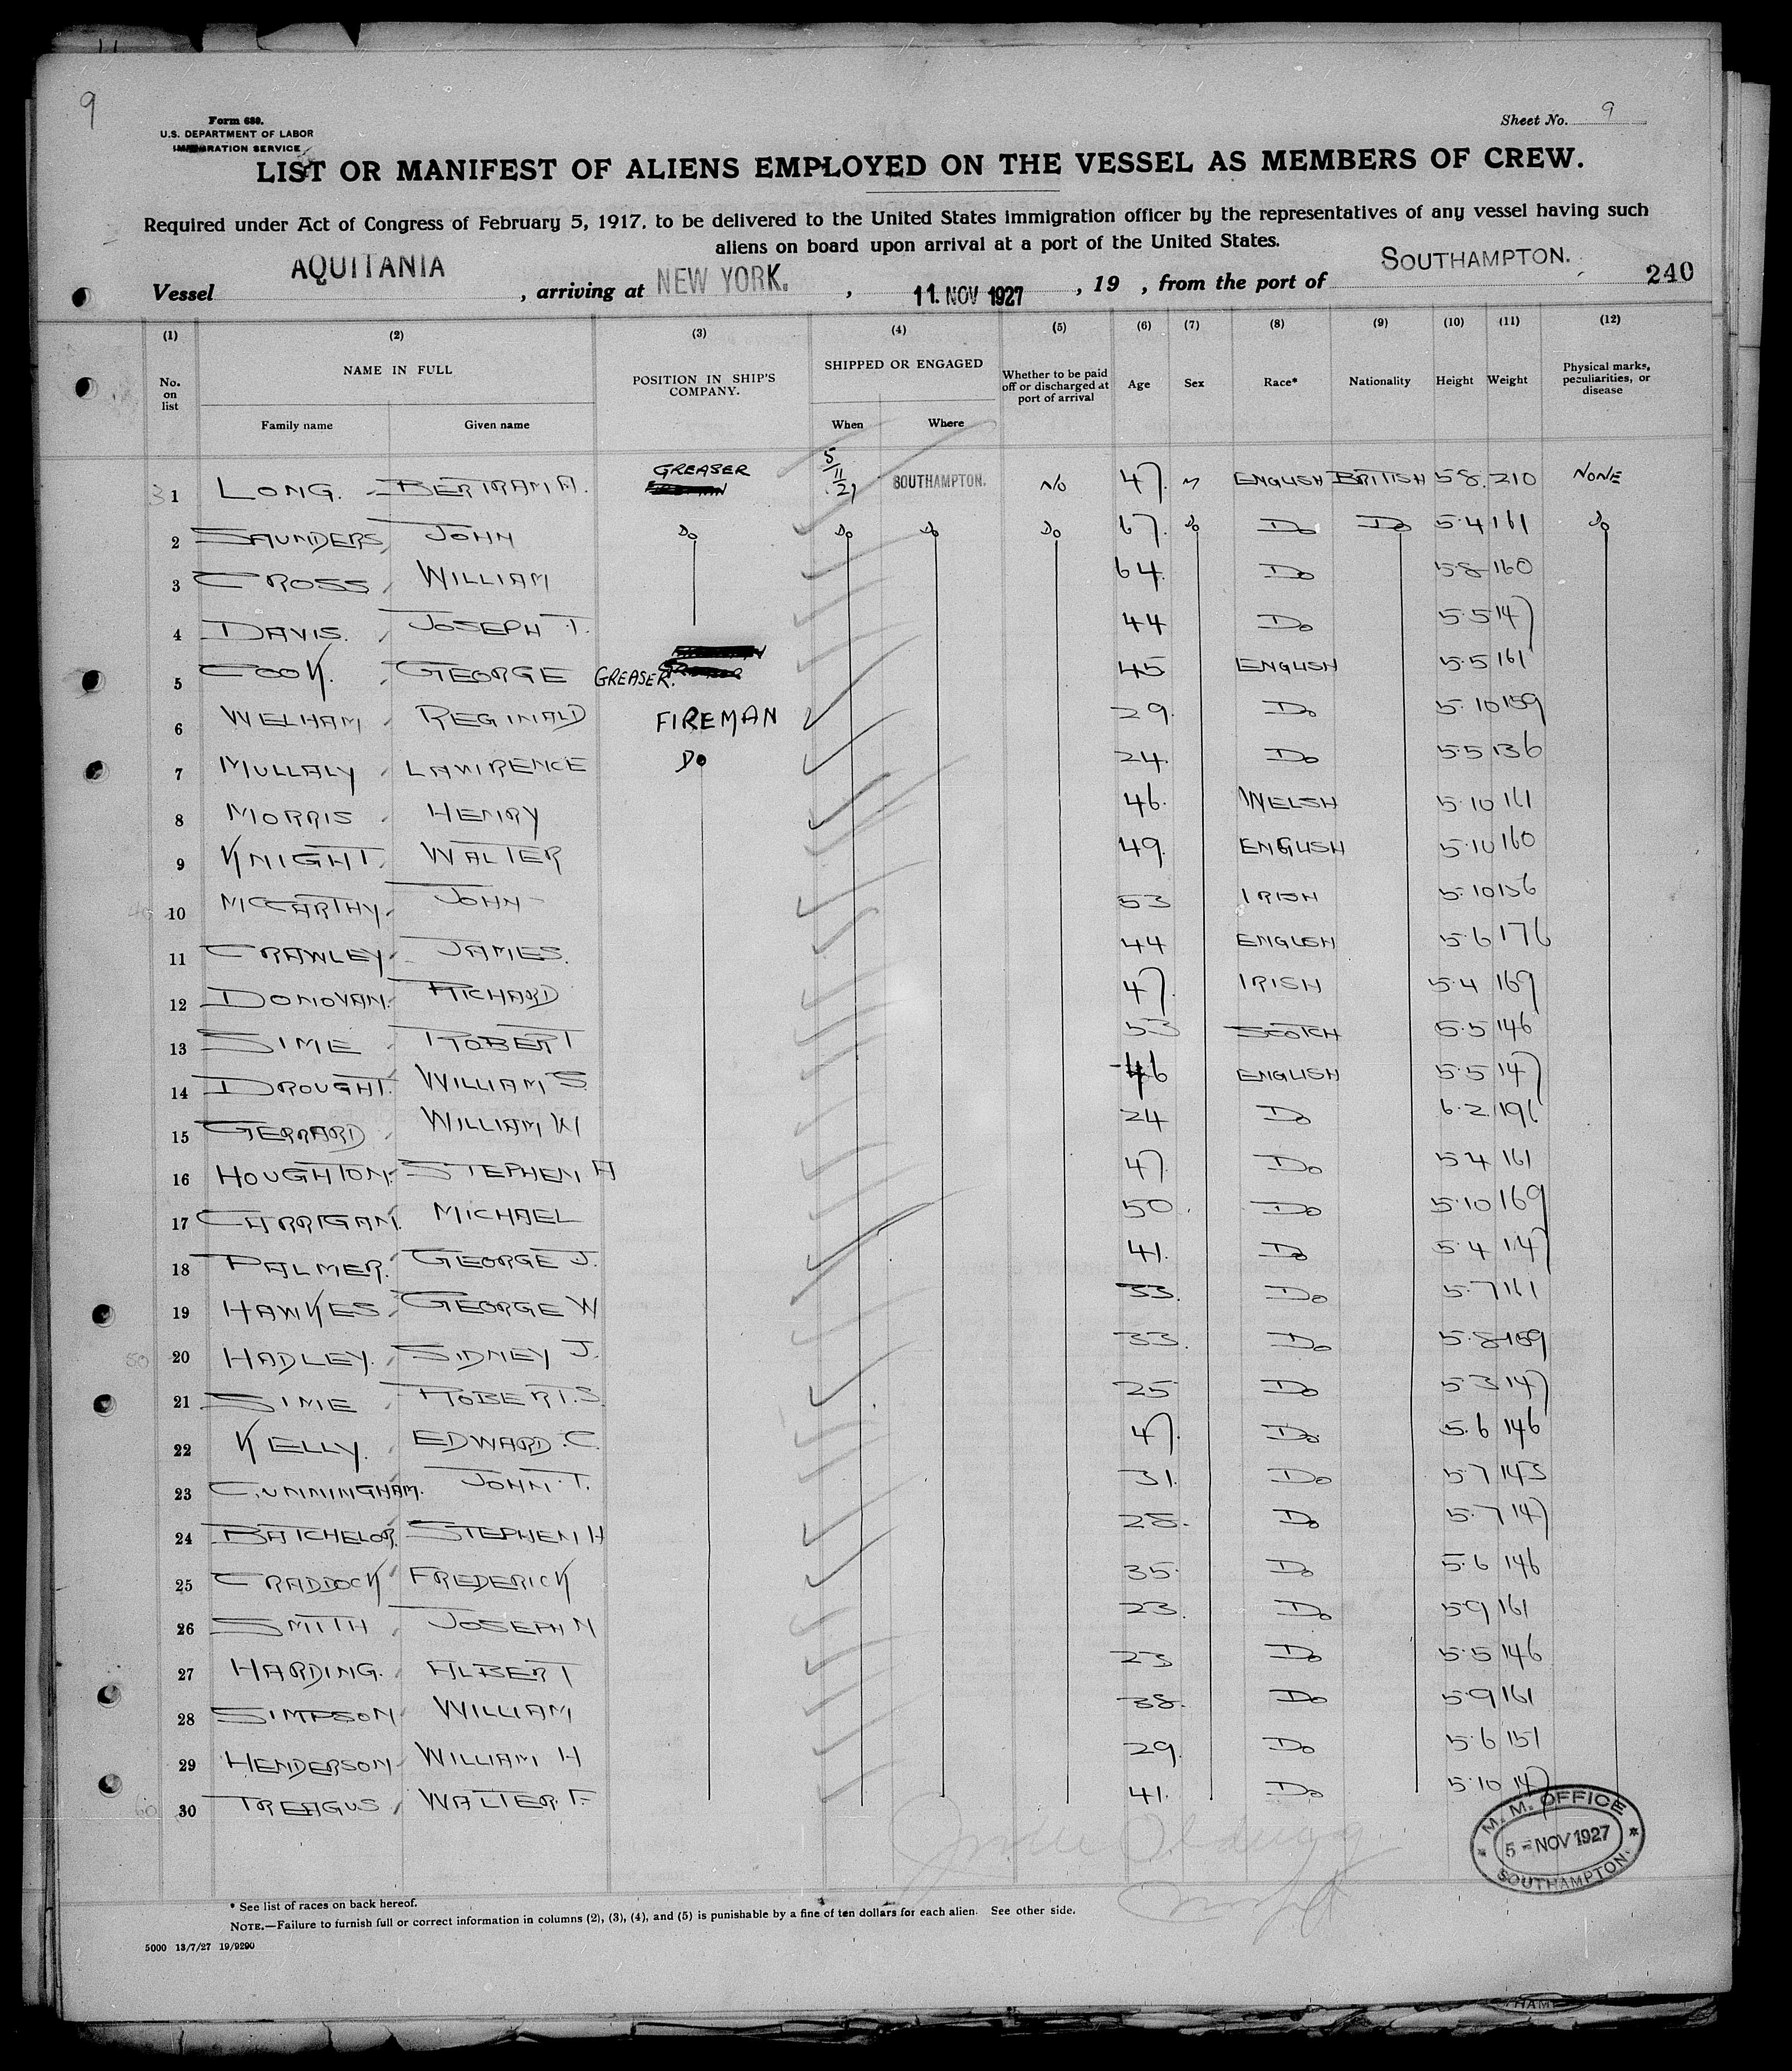 9
Form 680.
U.S. DEPARTMENT OF LABOR
IMMIGRATION SERVICE
Sheet No. 9
LIST OR MANIFEST OF ALIENS EMPLOYED ON THE VESSEL AS MEMBERS OF CREW.
Required under Act of Congress of February 5, 1917, to be delivered to the United States immigration officer by the representatives of any vessel having such
aliens on board upon arrival at a port of the United States.
Vessel AQUITANIA, arriving at NEW YORK., 11. NOV 1927, 19 , from the port of SOUTHAMPTON. 240
(1) (2) (3) (4) (5) (6) (7) (8) (9) (10) (11) (12)
No. on list NAME IN FULL POSITION IN SHIP'S COMPANY. SHIPPED OR ENGAGED Whether to be paid off or discharged at port of arrival Age Sex Race* Nationality Height Weight Physical marks, peculiarities, or disease
Family name Given name When Where
1 LONG. BERTRAM A. GREASER 5/11/27 SOUTHAMPTON. NO 47. M ENGLISH BRITISH 5.8. 210 NONE
2 SAUNDERS JOHN Do Do Do Do 67. Do Do Do 5.4 161 Do
3 CROSS WILLIAM 64. Do 5.8 160
4 DAVIS. JOSEPH T. 44 Do 5.5 147
5 COOK. GEORGE GREASER. 45 ENGLISH 5.5 161
6 WELHAM REGINALD FIREMAN 29. Do 5.10 159
7 MULLALY LAWRENCE Do 24. Do 5.5 136
8 MORRIS HENRY 46. WELSH 5.10 161
9 KNIGHT. WALTER 49. ENGLISH 5.10 160
10 MCCARTHY. JOHN 53 IRISH 5.10 156
11 CRAWLEY JAMES. 44 ENGLISH 5.6 176
12 DONOVAN. RICHARD 47. IRISH 5.4 169
13 SIME ROBERT 53 SCOTCH 5.5 146
14 DROUGHT. WILLIAM S. 46 ENGLISH 5.5 147
15 GERRARD WILLIAM W 24 Do 6.2 196
16 HOUGHTON. STEPHEN A 47. Do 5.4 161
17 CARRIGAN. MICHAEL 50. Do 5.10 169
18 PALMER. GEORGE J. 41. Do 5.4 147
19 HAWKES. GEORGE W 33. Do 5.7 161
20 HADLEY. SIDNEY J. 33. Do 5.8 159
21 SIME ROBERT. S. 25 Do 5.3 147
22 KELLY. EDWARD. C. 47. Do 5.6 146
23 CUNNINGHAM. JOHN. T. 31. Do 5.7 143
24 BATCHELOR. STEPHEN H 28. Do 5.7 147
25 CRADDOCK FREDERICK 35. Do 5.6 146
26 SMITH JOSEPH N 23. Do 5.9 161
27 HARDING. ALBERT 23 Do 5.5 146
28 SIMPSON WILLIAM 38. Do 5.9 161
29 HENDERSON WILLIAM H 29. Do 5.6 151
30 TREAGUS WALTER. F. 41. Do 5.10 147
M. M. OFFICE
5 - NOV 1927
SOUTHAMPTON.
* See list of races on back hereof.
NOTE.—Failure to furnish full or correct information in columns (2), (3), (4), and (5) is punishable by a fine of ten dollars for each alien. See other side.
5000 13/7/27 19/9290